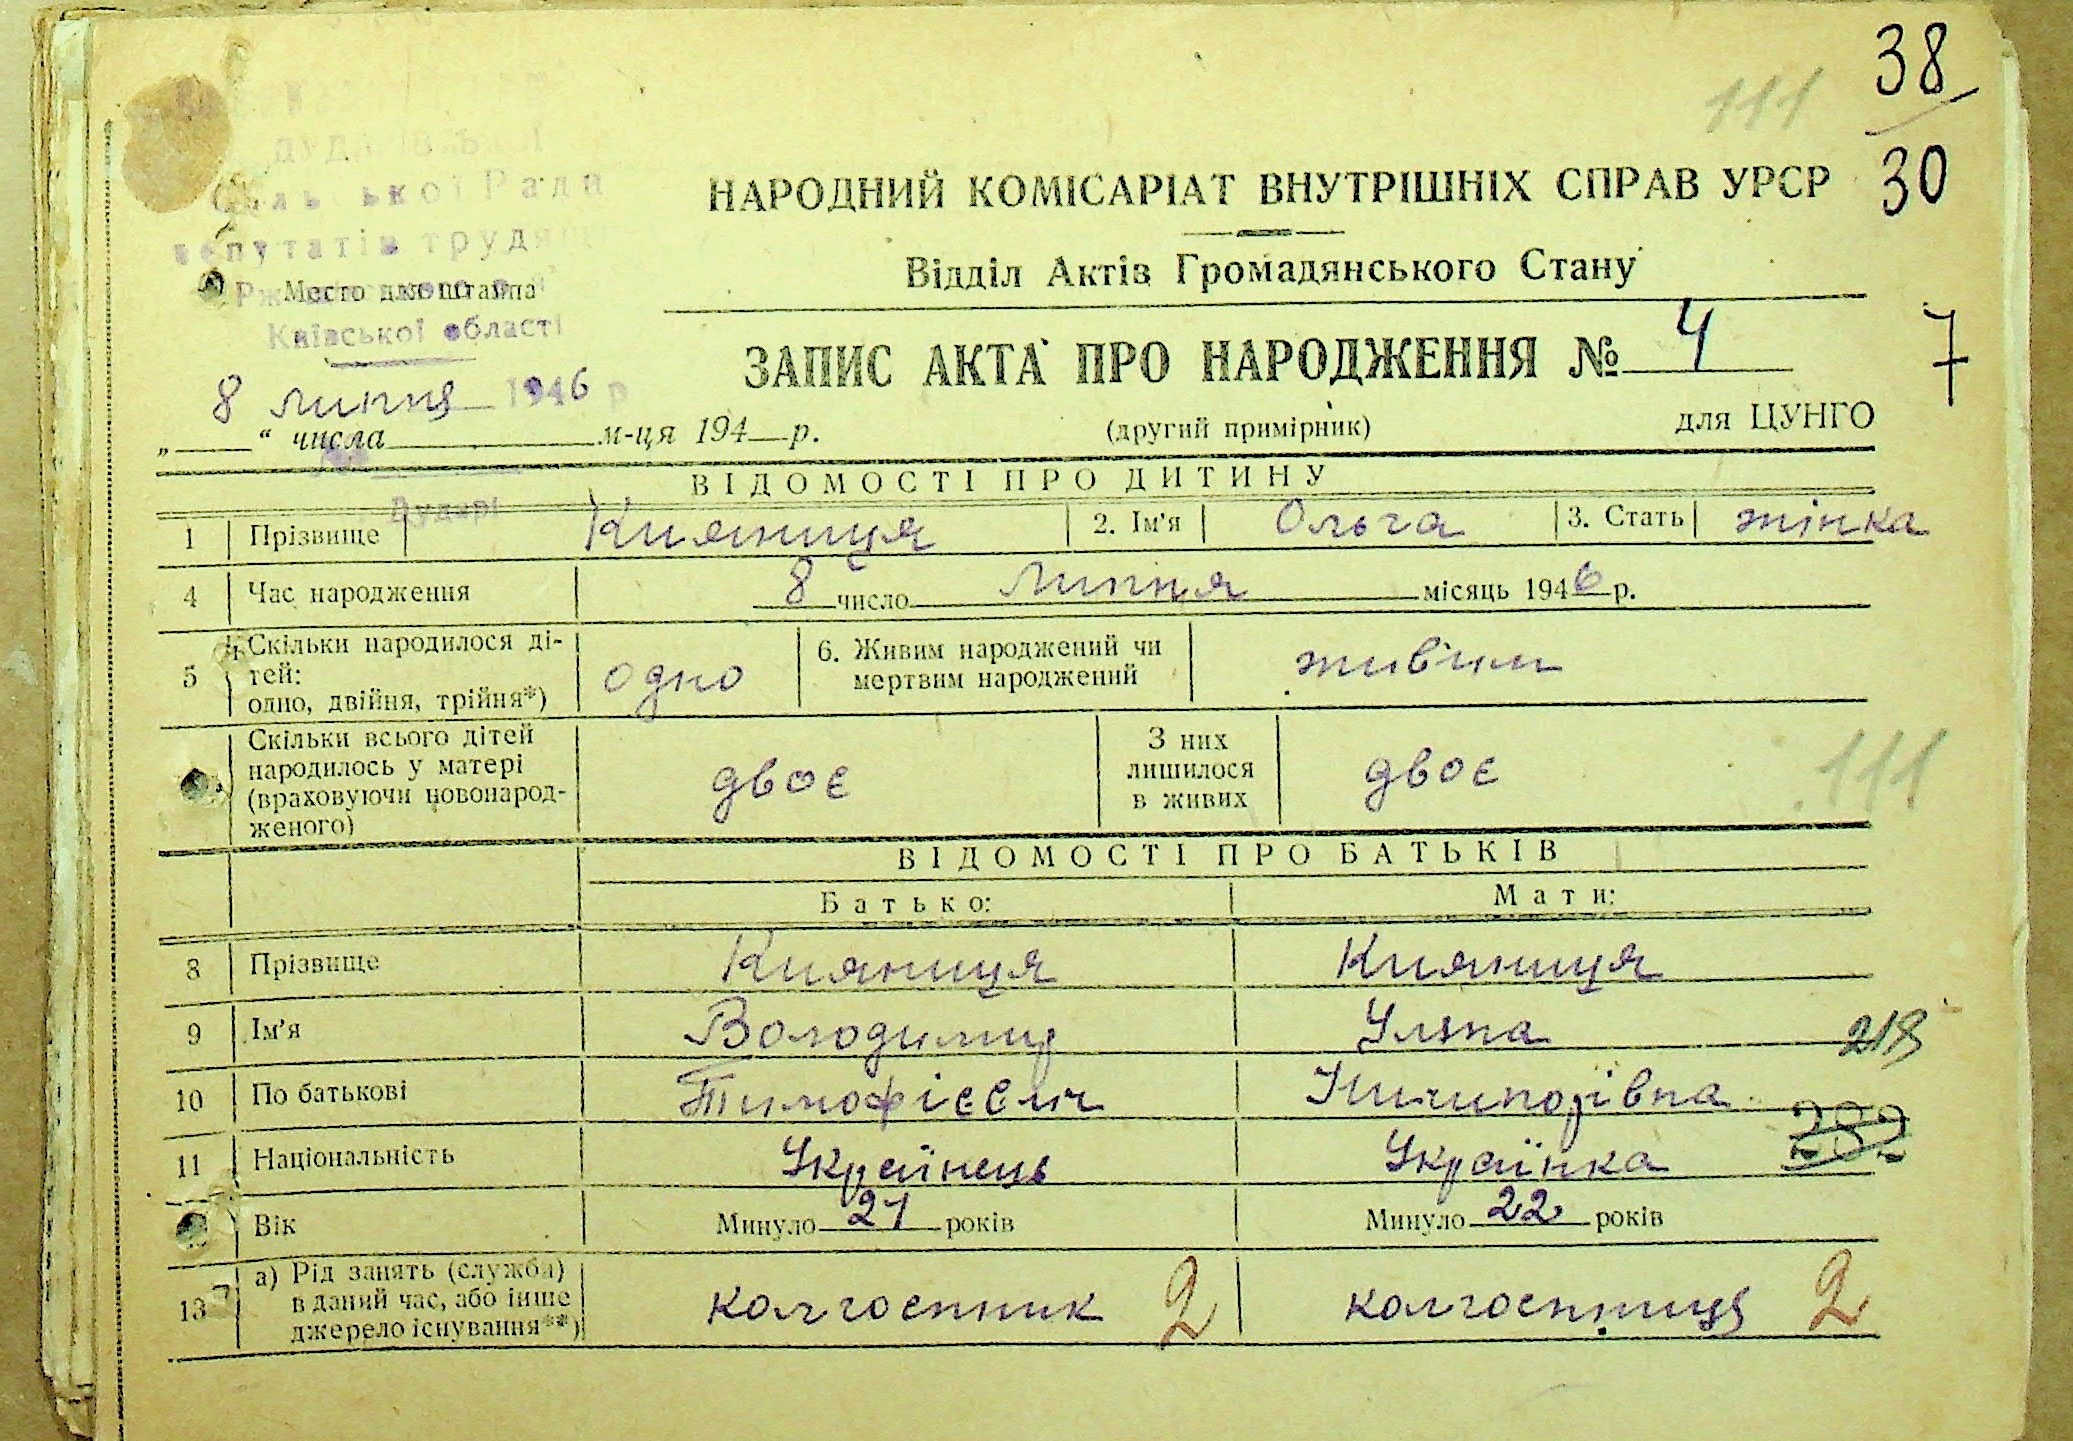 38
111
30
НАРОДНИЙ КОМІСАРІАТ ВНУТРІШНІХ СПРАВ УРСР
Відділ Актів Громадянського Стану
Место для штампа
Київської області
ЗАПИС АКТА ПРО НАРОДЖЕННЯ № 4
7
8 липня 1946 р
„ “ числа м-ця 194 р.
(другий примірник)
для ЦУНГО
ВІДОМОСТІ ПРО ДИТИНУ
Дударі
1 Прізвище Кияниця 2. Ім'я Ольга 3. Стать жінка
4 Час народження 8 число Липня місяць 1946 р.
5 Скільки народилося ді-
тей:
одно, двійня, трійня*)
одно
6. Живим народжений чи
мертвим народжений
живим
Скільки всього дітей
народилось у матері
(враховуючи новонарод-
женого)
двоє
З них
лишилося
в живих
двоє
111
ВІДОМОСТІ ПРО БАТЬКІВ
Батько: Мати:
8 Прізвище Кияниця Кияниця
9 Ім'я Володимир Уляна
219
10 По батькові Тимофієвич Ничипорівна
11 Національність Українець Українка
Вік Минуло 21 років Минуло 22 років
13 а) Рід занять (служба)
в даний час, або інше
джерело існування**)
колгоспник 2 колгоспниця 2